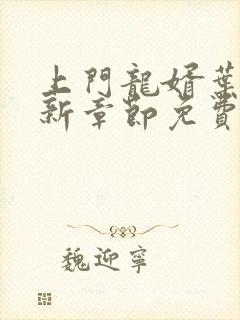 上門龍婿葉
新章節免費
魏迎寧